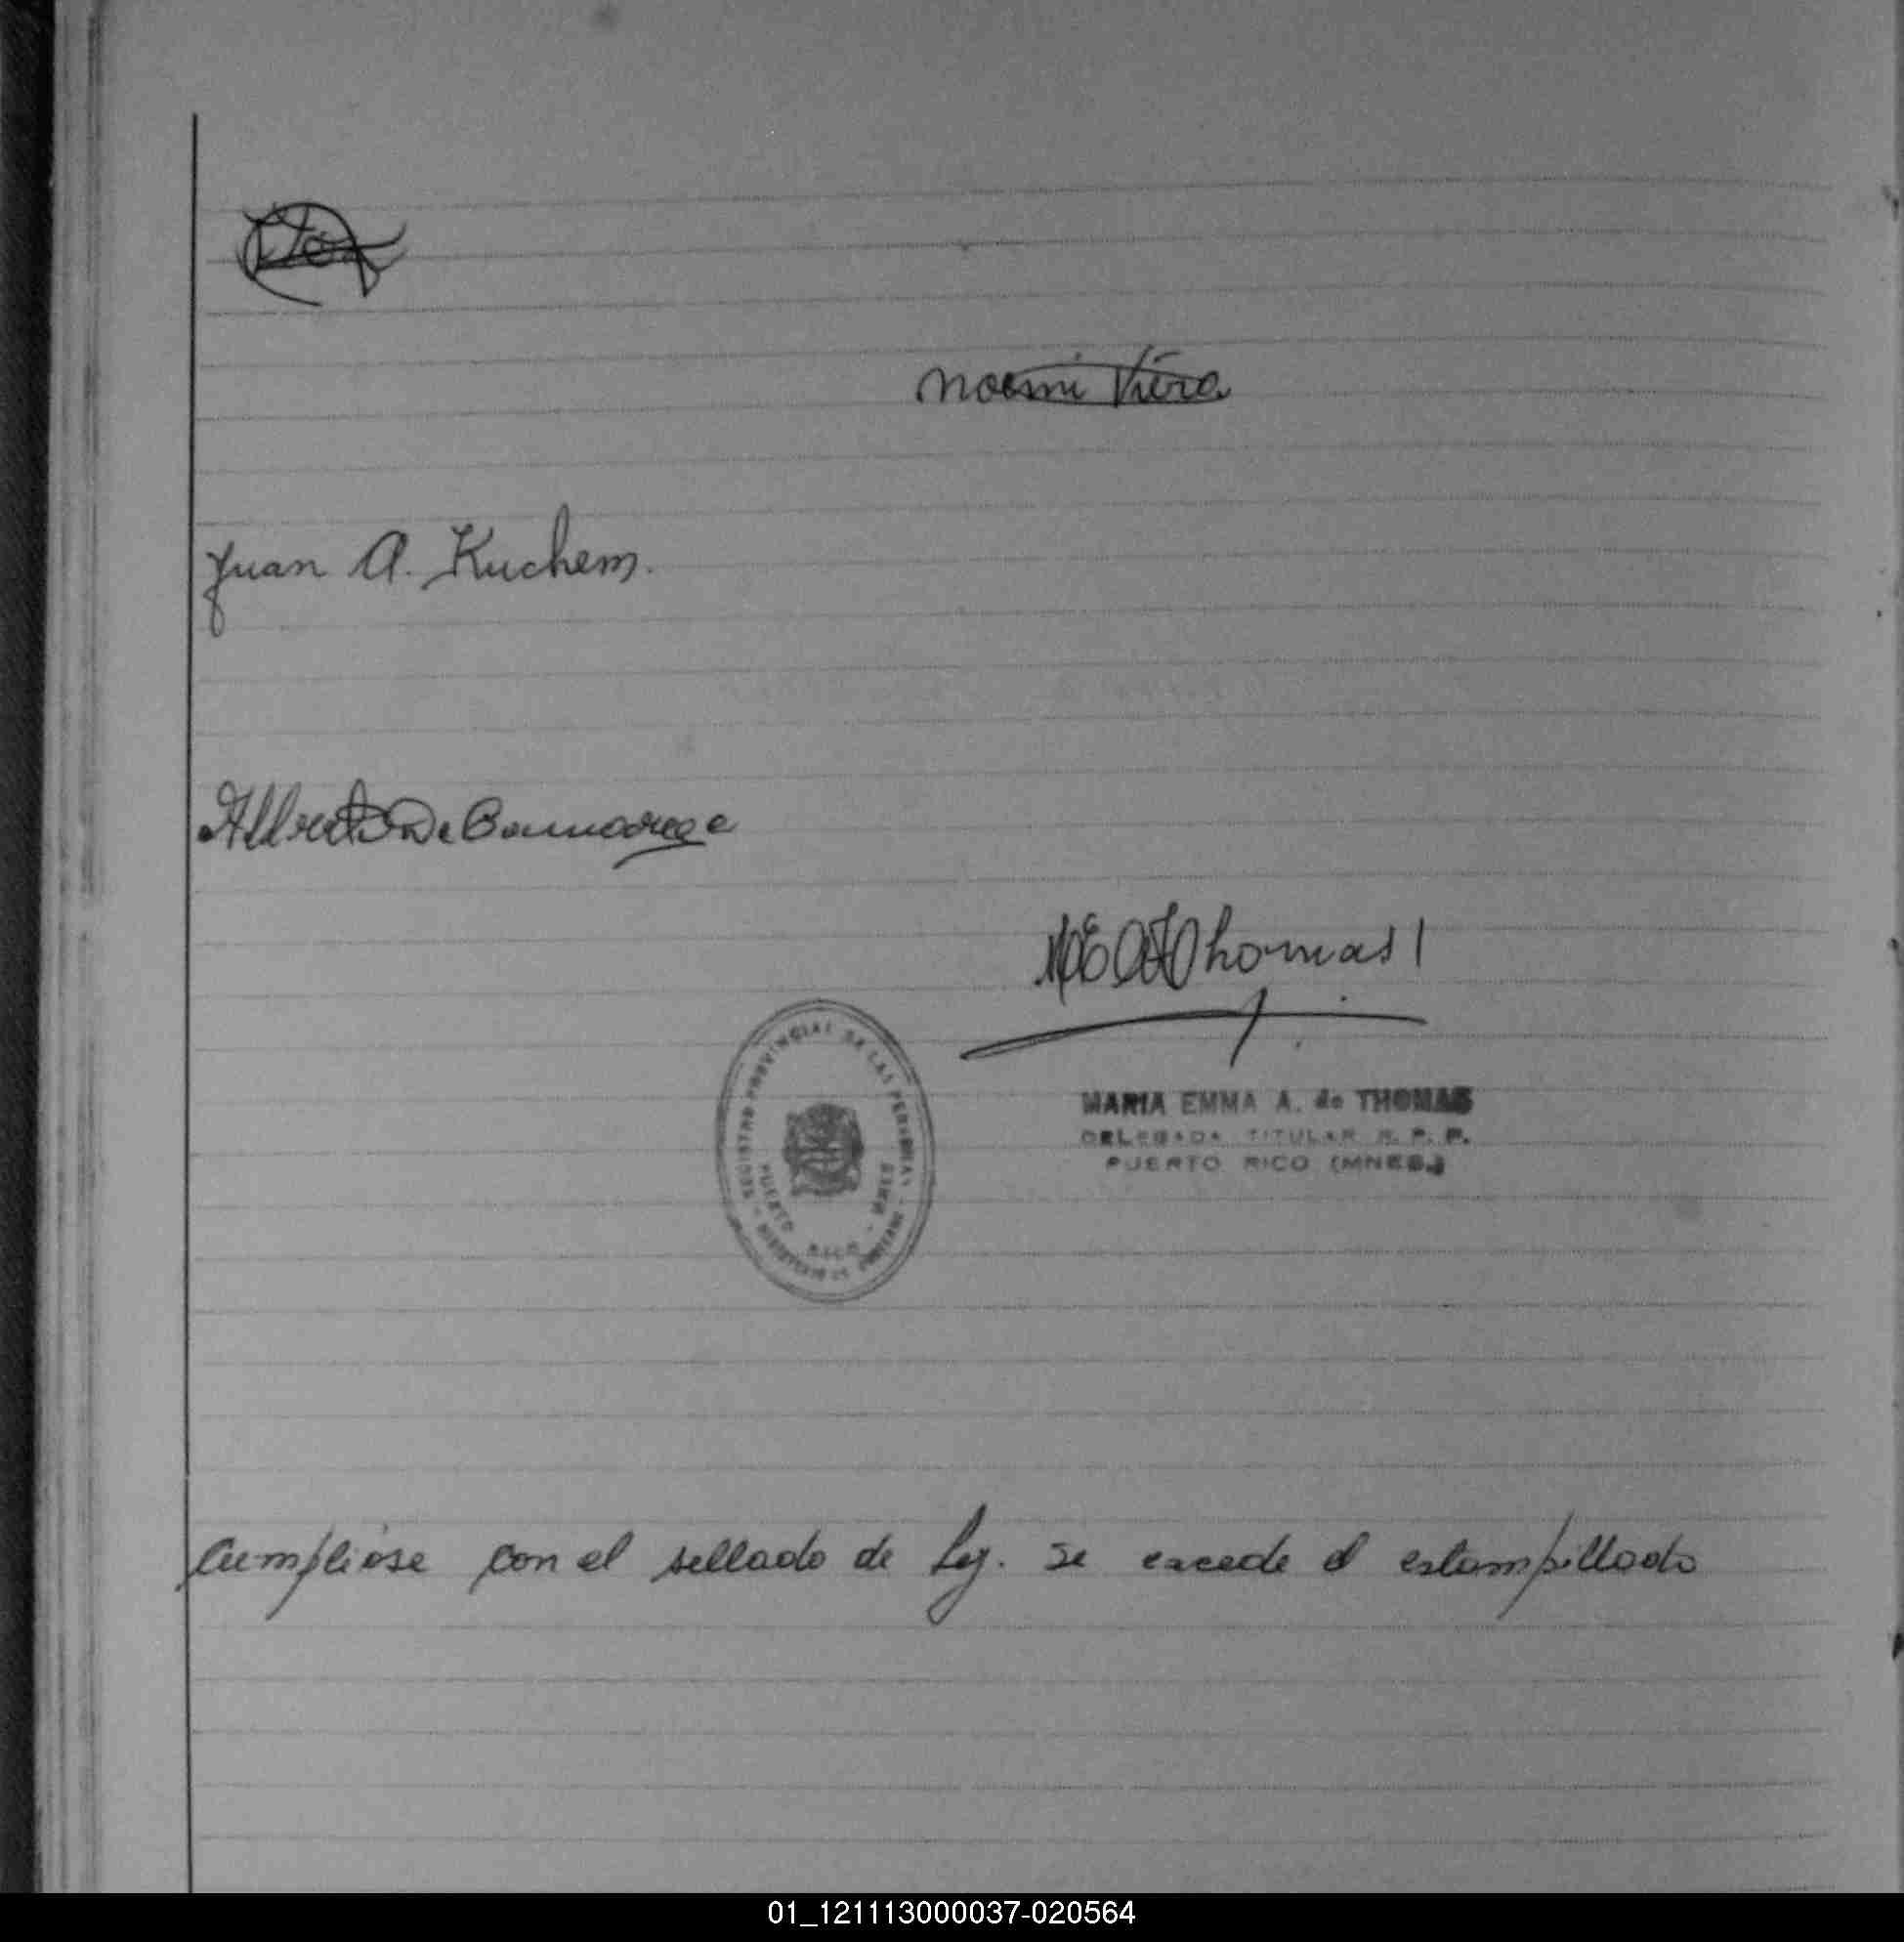 Noemi Viera
Juan A. Kuchem.
Alberto De
Thomas
REGISTRO PROVINCIAL DE LAS PERSONAS
PUERTO RICO - MNES
MARIA EMMA A. de THOMAS
DELEGADA TITULAR R. P. P.
PUERTO RICO (MNES.)
Cumpliose con el sellado de Ley. Se excede el estampillado
01_121113000037-020564